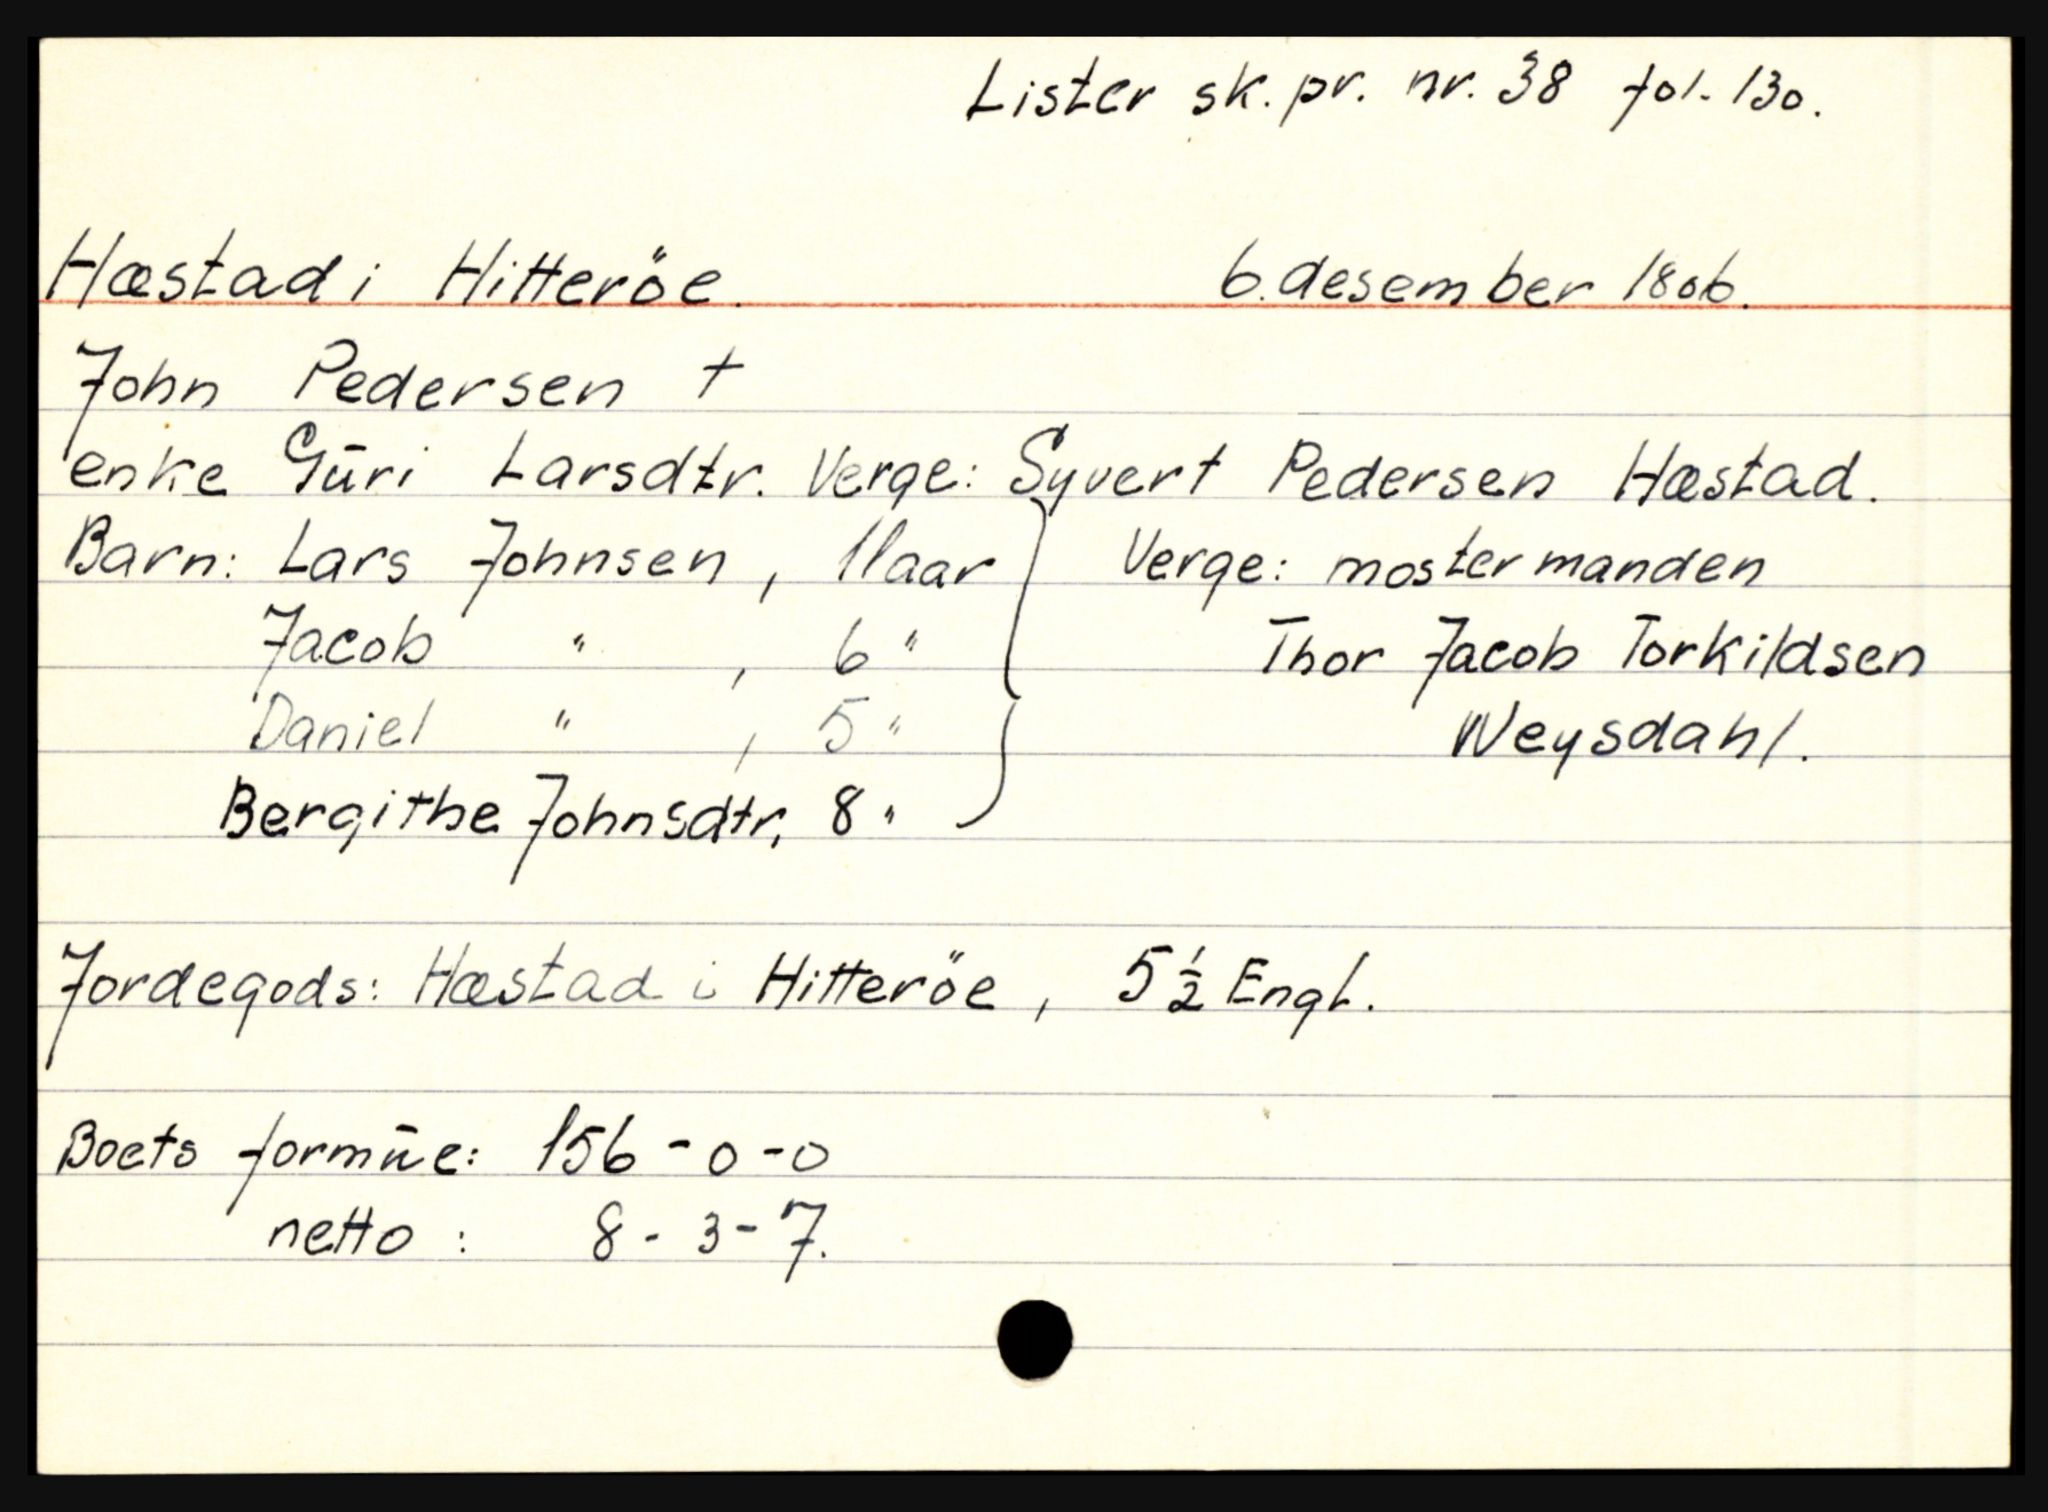 Lister sk. pr. nr. 38 fol. 130.
Hæstad i Hitteröe. 6. desember 1806.
John Pedersen +
enke Gūri Larsdtr. Verge: Syvert Pedersen Hæstad.
Barn: Lars Johnsen, 11 aar } Verge: mostermanden
Jacob " , 6 " Thor Jacob Torkildsen
Daniel " , 5 " Weysdahl.
Bergithe Johnsdtr, 8 "
Jordegods: Hæstad i Hitteröe, 5 ½ Engl.
Boets formūe: 156 - 0 - 0
netto : 8 - 3 - 7.